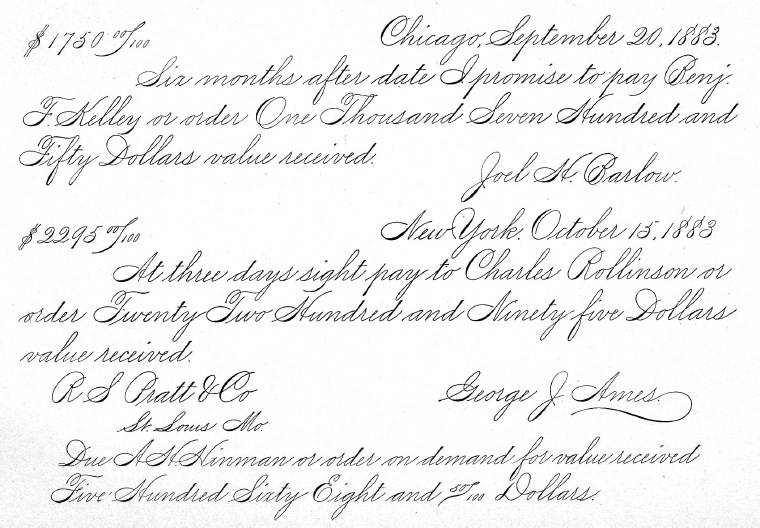 $1750 00/100 Chicago, September 20, 1883.
Six months after date I promise to pay Benj.
F. Kelley or order One Thousand Seven Hundred and
Fifty Dollars value received.
Joel H. Barlow.
$2295 00/100 New York, October 15, 1883
At three days sight pay to Charles Rollinson or
order Twenty Two Hundred and Ninety five Dollars
value received.
R S Pratt & Co George J. Ames.
St. Louis Mo.
Due A H Hinman or order on demand for value received
Five Hundred Sixty Eight and 50/100 Dollars.